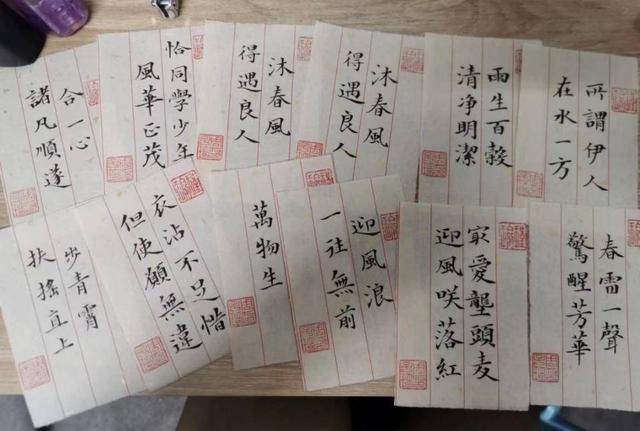 合一心
諸凡順遂
恰同學少年
風華正茂
沐春風
得遇良人
沐春風
得遇良人
雨生百穀
清净明潔
所謂伊人
在水一方
步青霄
扶搖直上
衣沾不足惜
但使願無違
萬物生
迎風浪
一往無前
㝡愛壟頭麦
迎風咲落紅
春雷一聲
驚醒芳華